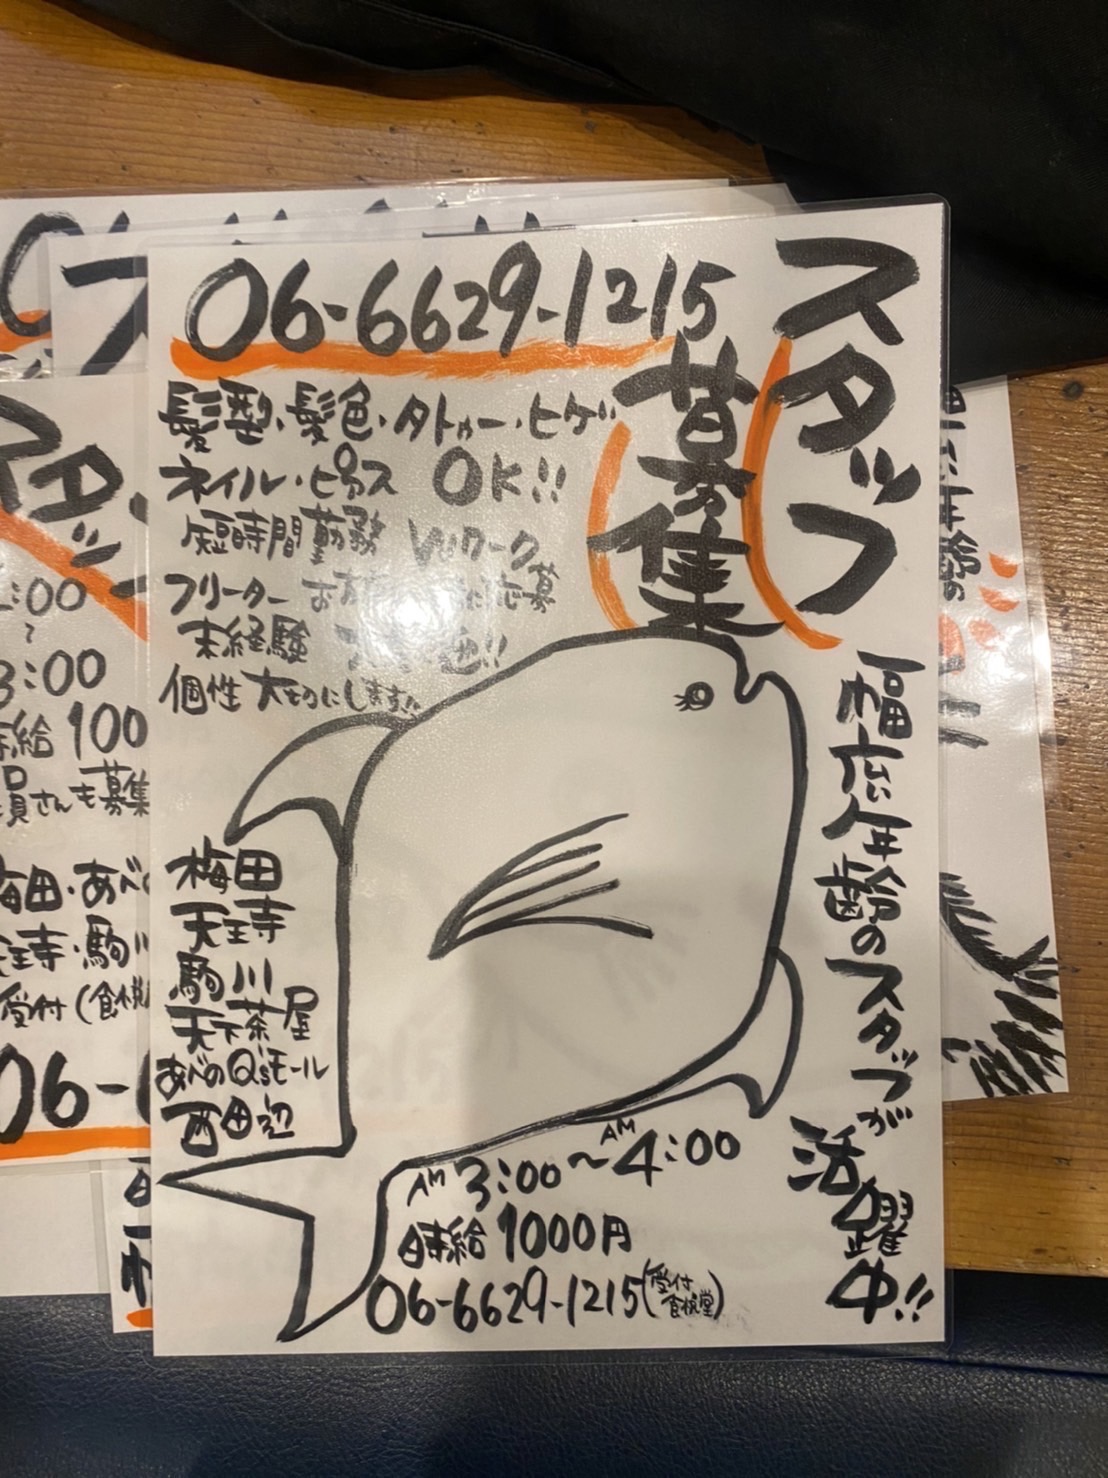 スタッフ
募集
06-6629-1215
髪型・髪色・タトゥー・ヒゲ
ネイル・ピアス OK!!
短時間勤務 Wワーク
フリーター 応募
未経験
個性大切にします!!
幅広年齢のスタッフが
活躍中!!
梅田
天王寺
駒川
天下茶屋
あべのQ'sモール
西田辺
AM3:00～AM4:00
時給1000円
06-6629-1215(受付
食悦堂)
3:00
給 100
員さんも募集
梅田・あべ
天王寺・駒川
受付(食悦
06-